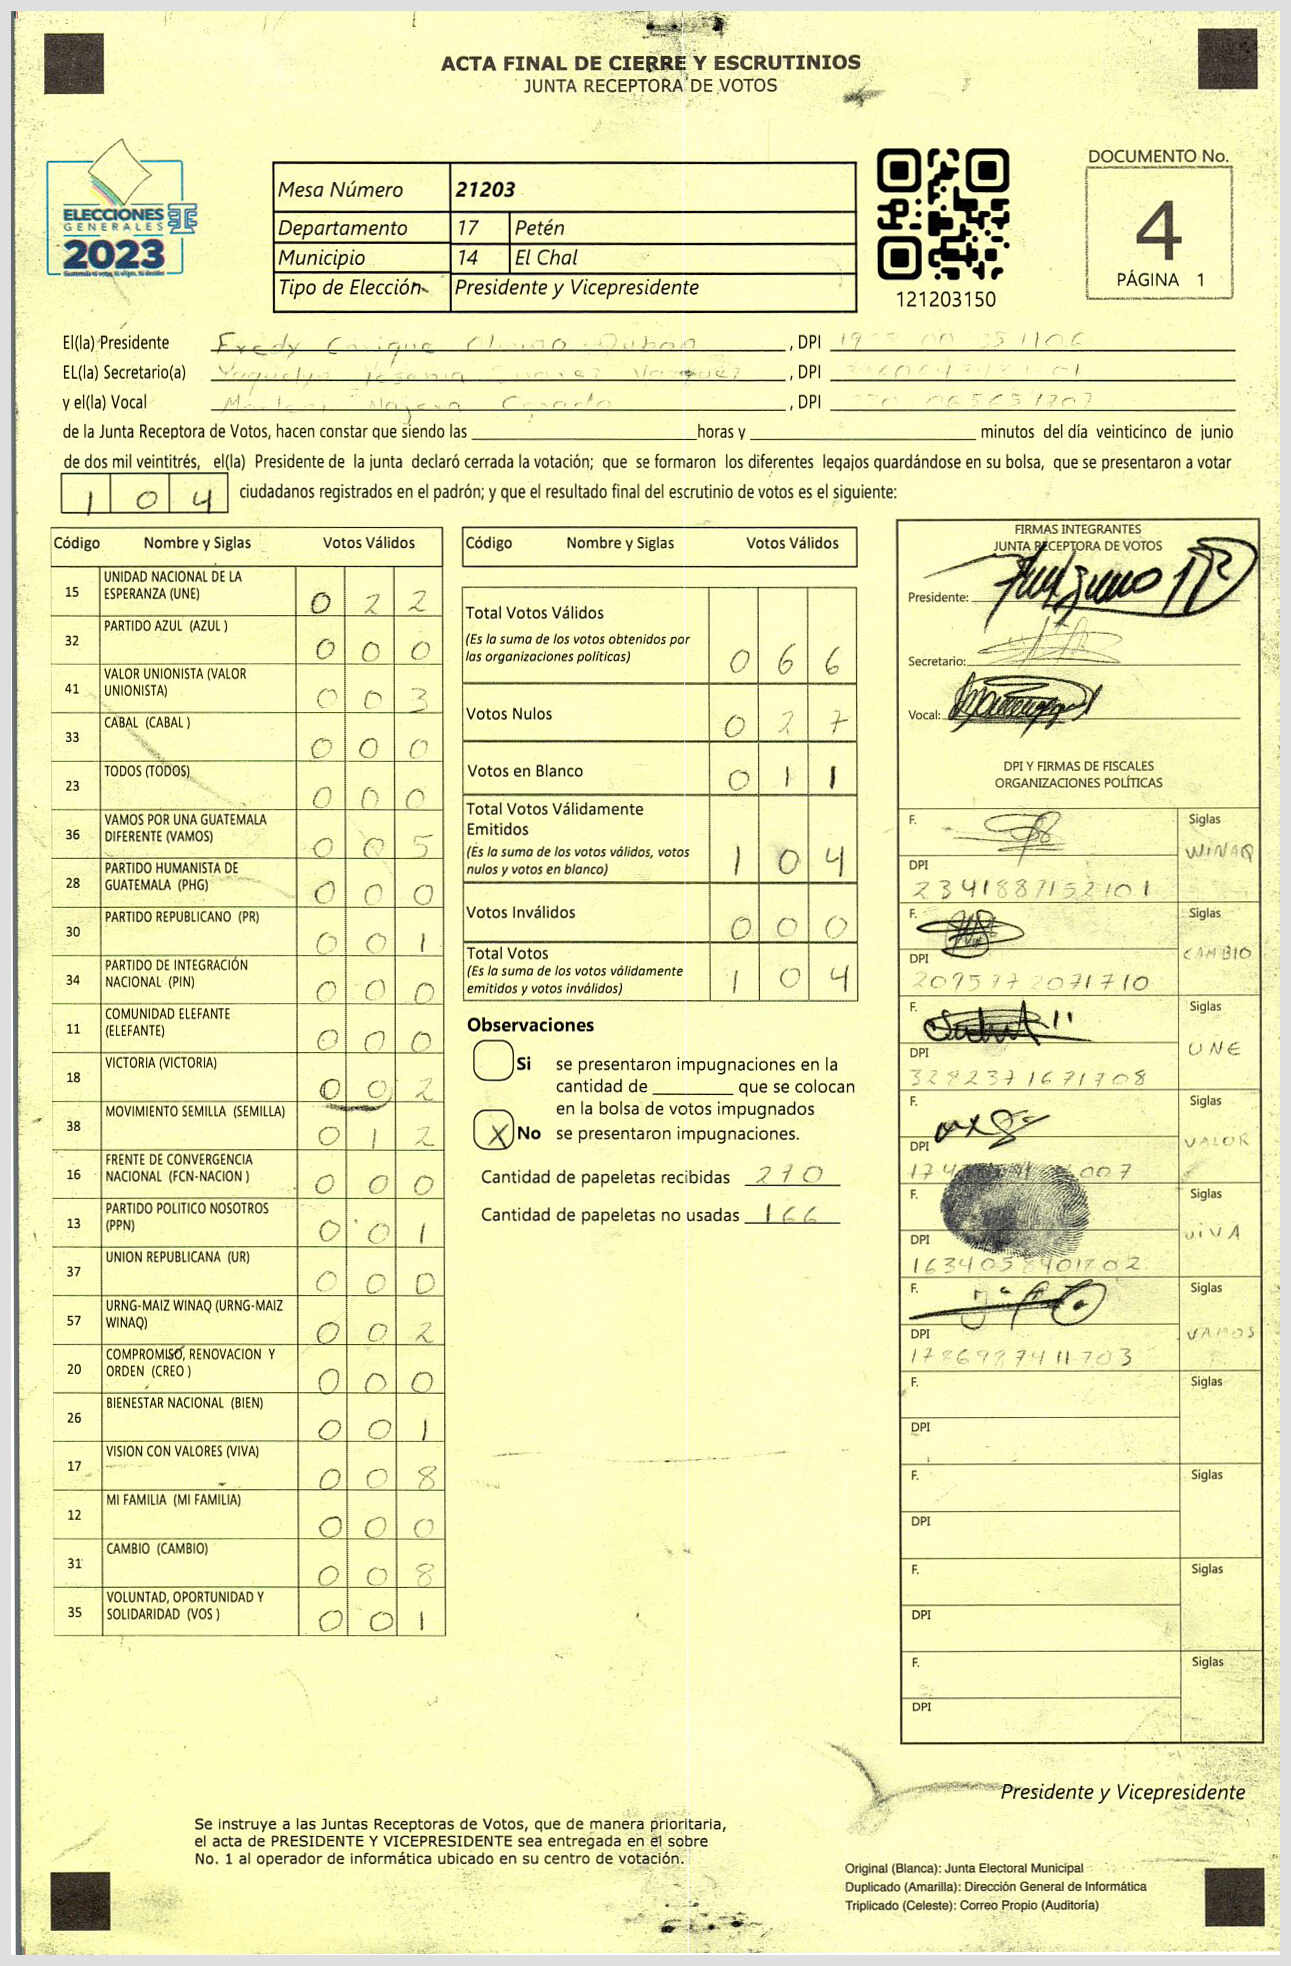 ACTA FINAL DE CIERRE Y ESCRUTINIOS
JUNTA RECEPTORA DE VOTOS
ELECCIONES
GENERALES
2023
Mesa Número 21203
Departamento 17 Petén
Municipio 14 El Chal
Tipo de Elección Presidente y Vicepresidente
121203150
DOCUMENTO No.
4
PÁGINA 1
El(la) Presidente Fredy Enrique , DPI
EL(la) Secretario(a) , DPI
y el(la) Vocal , DPI
de la Junta Receptora de Votos, hacen constar que siendo las horas y minutos del día veinticinco de junio
de dos mil veintitrés, el(la) Presidente de la junta declaró cerrada la votación; que se formaron los diferentes legajos guardándose en su bolsa, que se presentaron a votar
104 ciudadanos registrados en el padrón; y que el resultado final del escrutinio de votos es el siguiente:
Código Nombre y Siglas Votos Válidos
15 UNIDAD NACIONAL DE LA ESPERANZA (UNE) 0 2 2
32 PARTIDO AZUL (AZUL ) 0 0 0
41 VALOR UNIONISTA (VALOR UNIONISTA) 0 0 3
33 CABAL (CABAL ) 0 0 0
23 TODOS (TODOS) 0 0 0
36 VAMOS POR UNA GUATEMALA DIFERENTE (VAMOS) 0 0 5
28 PARTIDO HUMANISTA DE GUATEMALA (PHG) 0 0 0
30 PARTIDO REPUBLICANO (PR) 0 0 1
34 PARTIDO DE INTEGRACIÓN NACIONAL (PIN) 0 0 0
11 COMUNIDAD ELEFANTE (ELEFANTE) 0 0 0
18 VICTORIA (VICTORIA) 0 0 2
38 MOVIMIENTO SEMILLA (SEMILLA) 0 1 2
16 FRENTE DE CONVERGENCIA NACIONAL (FCN-NACION ) 0 0 0
13 PARTIDO POLITICO NOSOTROS (PPN) 0 0 1
37 UNION REPUBLICANA (UR) 0 0 0
57 URNG-MAIZ WINAQ (URNG-MAIZ WINAQ) 0 0 2
20 COMPROMISO, RENOVACION Y ORDEN (CREO ) 0 0 0
26 BIENESTAR NACIONAL (BIEN) 0 0 1
17 VISION CON VALORES (VIVA) 0 0 8
12 MI FAMILIA (MI FAMILIA) 0 0 0
31 CAMBIO (CAMBIO) 0 0 8
35 VOLUNTAD, OPORTUNIDAD Y SOLIDARIDAD (VOS ) 0 0 1
Código Nombre y Siglas Votos Válidos
Total Votos Válidos
(Es la suma de los votos obtenidos por
las organizaciones políticas) 0 6 6
Votos Nulos 0 2 7
Votos en Blanco 0 1 1
Total Votos Válidamente
Emitidos
(Es la suma de los votos válidos, votos
nulos y votos en blanco) 1 0 4
Votos Inválidos 0 0 0
Total Votos
(Es la suma de los votos válidamente
emitidos y votos inválidos) 1 0 4
Observaciones
Si se presentaron impugnaciones en la
cantidad de que se colocan
en la bolsa de votos impugnados
X No se presentaron impugnaciones.
Cantidad de papeletas recibidas 270
Cantidad de papeletas no usadas 166
FIRMAS INTEGRANTES
JUNTA RECEPTORA DE VOTOS
Presidente:
Secretario:
Vocal:
DPI Y FIRMAS DE FISCALES
ORGANIZACIONES POLÍTICAS
F. Siglas
WINAQ
DPI
2341887152101
F. Siglas
CAMBIO
DPI
2095772071710
F. Siglas
UNE
DPI
3282371671708
F. Siglas
VALOR
DPI
F. Siglas
VIVA
DPI
F. Siglas
VAMOS
DPI
1786987411703
F. Siglas
DPI
F. Siglas
DPI
F. Siglas
DPI
F. Siglas
DPI
Presidente y Vicepresidente
Se instruye a las Juntas Receptoras de Votos, que de manera prioritaria,
el acta de PRESIDENTE Y VICEPRESIDENTE sea entregada en el sobre
No. 1 al operador de informática ubicado en su centro de votación.
Original (Blanca): Junta Electoral Municipal
Duplicado (Amarilla): Dirección General de Informática
Triplicado (Celeste): Correo Propio (Auditoría)